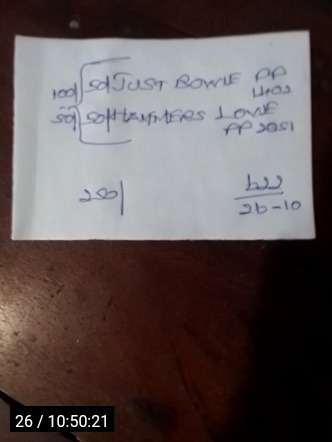 100/ 50/ JUST BOWIE PP
4.02
50/ 50/ HAMMERS LANE
PP 2051
250/
b22
26-10
26 / 10:50:21